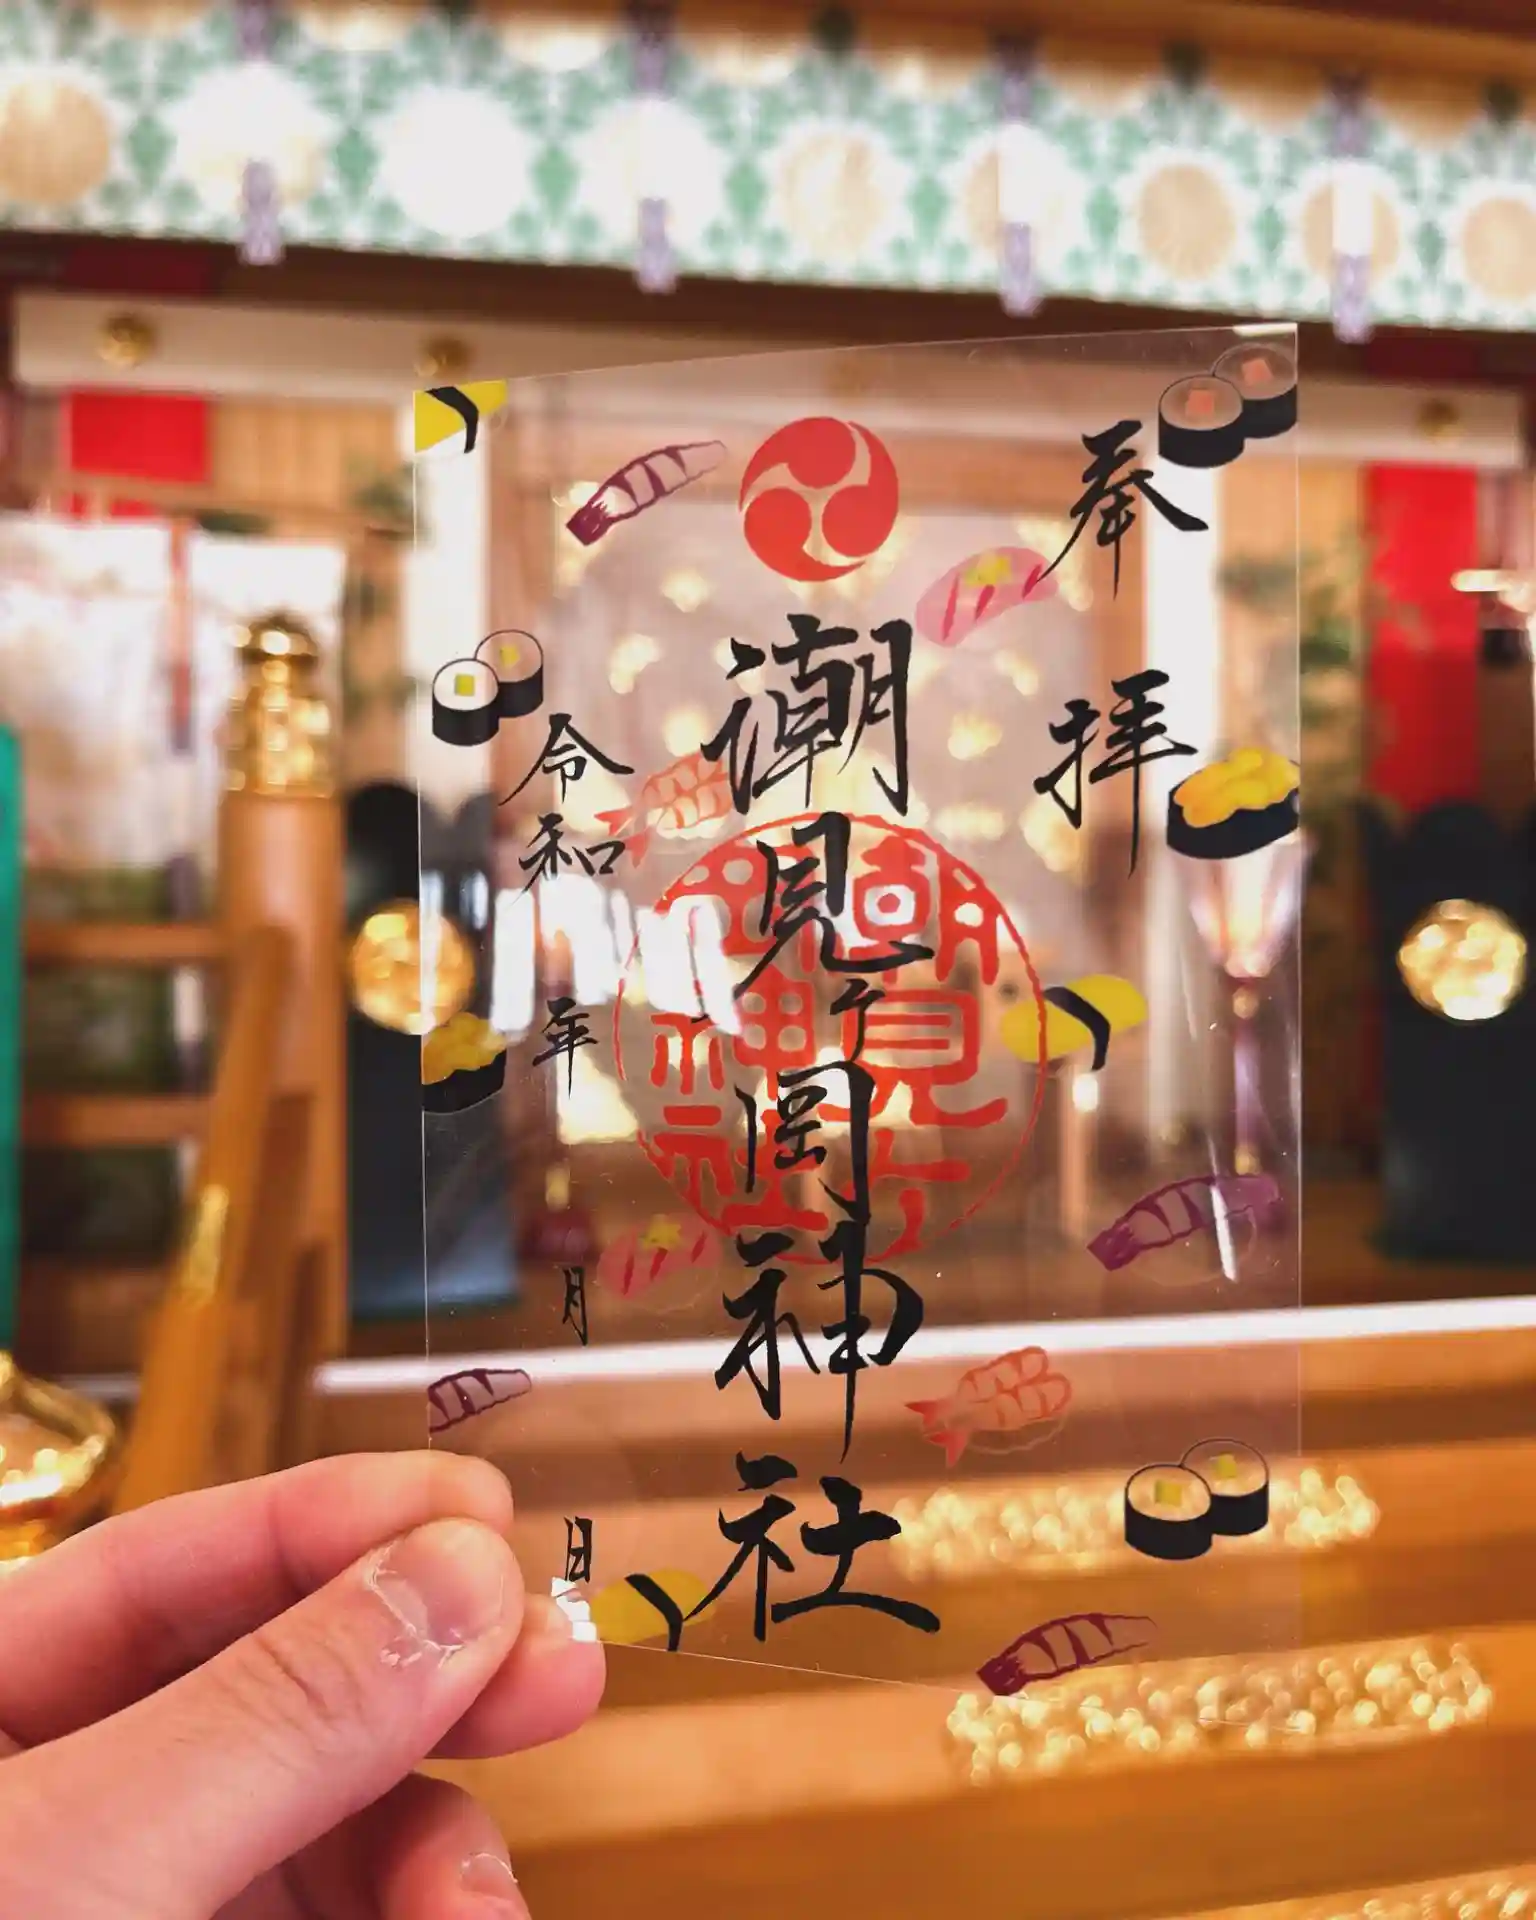 奉拝
潮見ヶ岡神社
潮見ヶ岡神社
令和 年 月 日